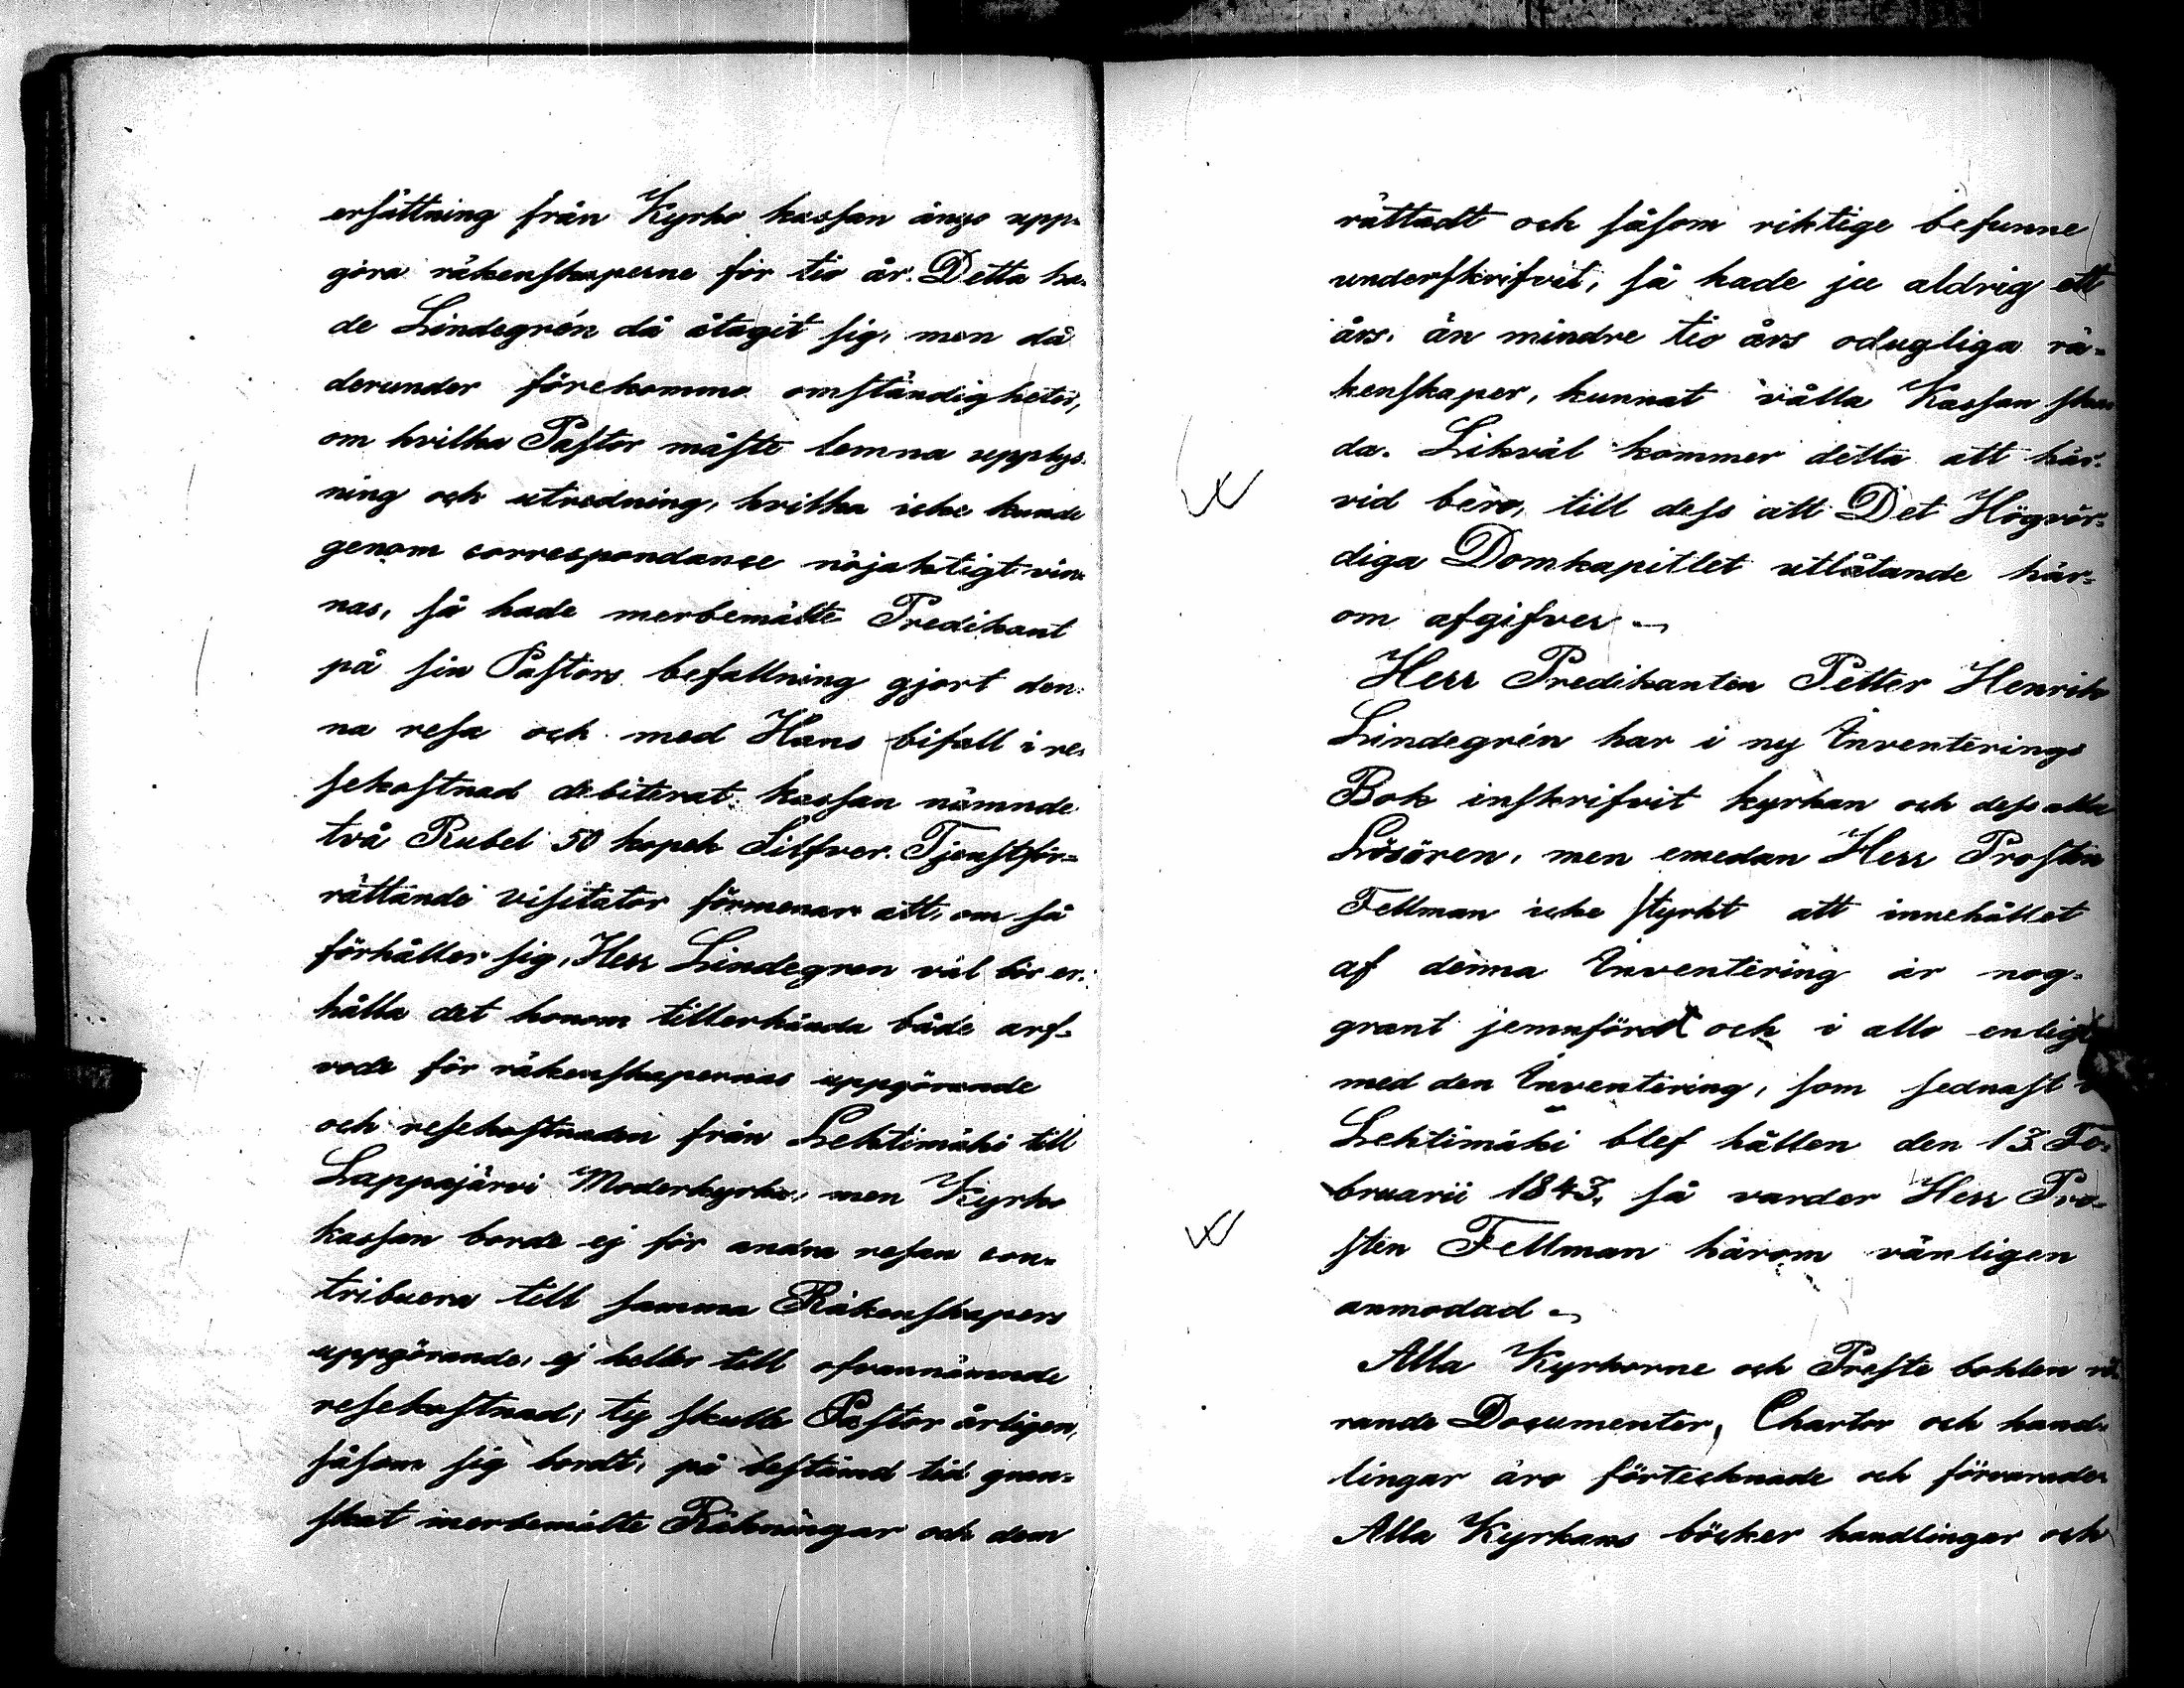 ersättning från Kyrko kassan ånyo upp-
göra räkenskaperne för tio år. Detta ha-
de Lindegrén då åtagit sig, men då
derunder förekommo omständigheter,
om hvilka Pastor måste lemna upplys-
ning och utredning, hvilka icke kunde
genom correspondance nöjaktigt vin-
nas, så hade merbemälte Predikant
på sin Pastors befallning gjort den-
na resa och med Hans bifall i re-
sekostnad debiterat kassan nämnde
två Rubel 50 kopek Silfver. Tjenstför-
rättande Visitator förmenar att, om så
förhåller sig, Herr Lindegren väl bör er-
hålla det honom tillerkända både arf-
vode för räkenskapernas uppgörande
och resekostnaden från Lehtimäki till
Lappajärvi Moderkyrka, men Kyrko
kassan borde ej för andra resan con-
tribuera till samma Räkenskapers
uppgörande, ej heller till ofvannämnde
resekostnad; ty skulle Pastor årligen,
såsom sig bordt, på bestämd tid gran-
skat merbemälte Räkningar och dem
rättadt och såsom riktige befunne
underskrifvit, så hade ju aldrig ett
års, än mindre tio års odugliga rä-
kenskaper, kunnat vålla Kassan ska-
da. Likväl kommer detta att här-
vid bero, till dess att Det Högvör-
diga Domkapitlet utlåtande här-
om afgifver.
Herr Predikanten Petter Henrik
Lindegrén har i ny Inventerings
Bok inskrifvit kyrkan och dess alla
Lösören, men emedan Herr Prosten
Fellman icke styrkt att innehållet
af denna Inventering är nog-
grant jemnfördt och i allo enligt
med den Inventering, som sednast i
Lehtimäki blef hållen den 13 Fe-
bruarii 1843, så varder Herr Pro-
sten Fellman härom vänligen
anmodad.
Alla Kyrkorne och Preste bohlen rö-
rande Documenter, Chartor och hand-
lingar äro förtecknade och förvarade.
Alla Kyrkans böcker handlingar och